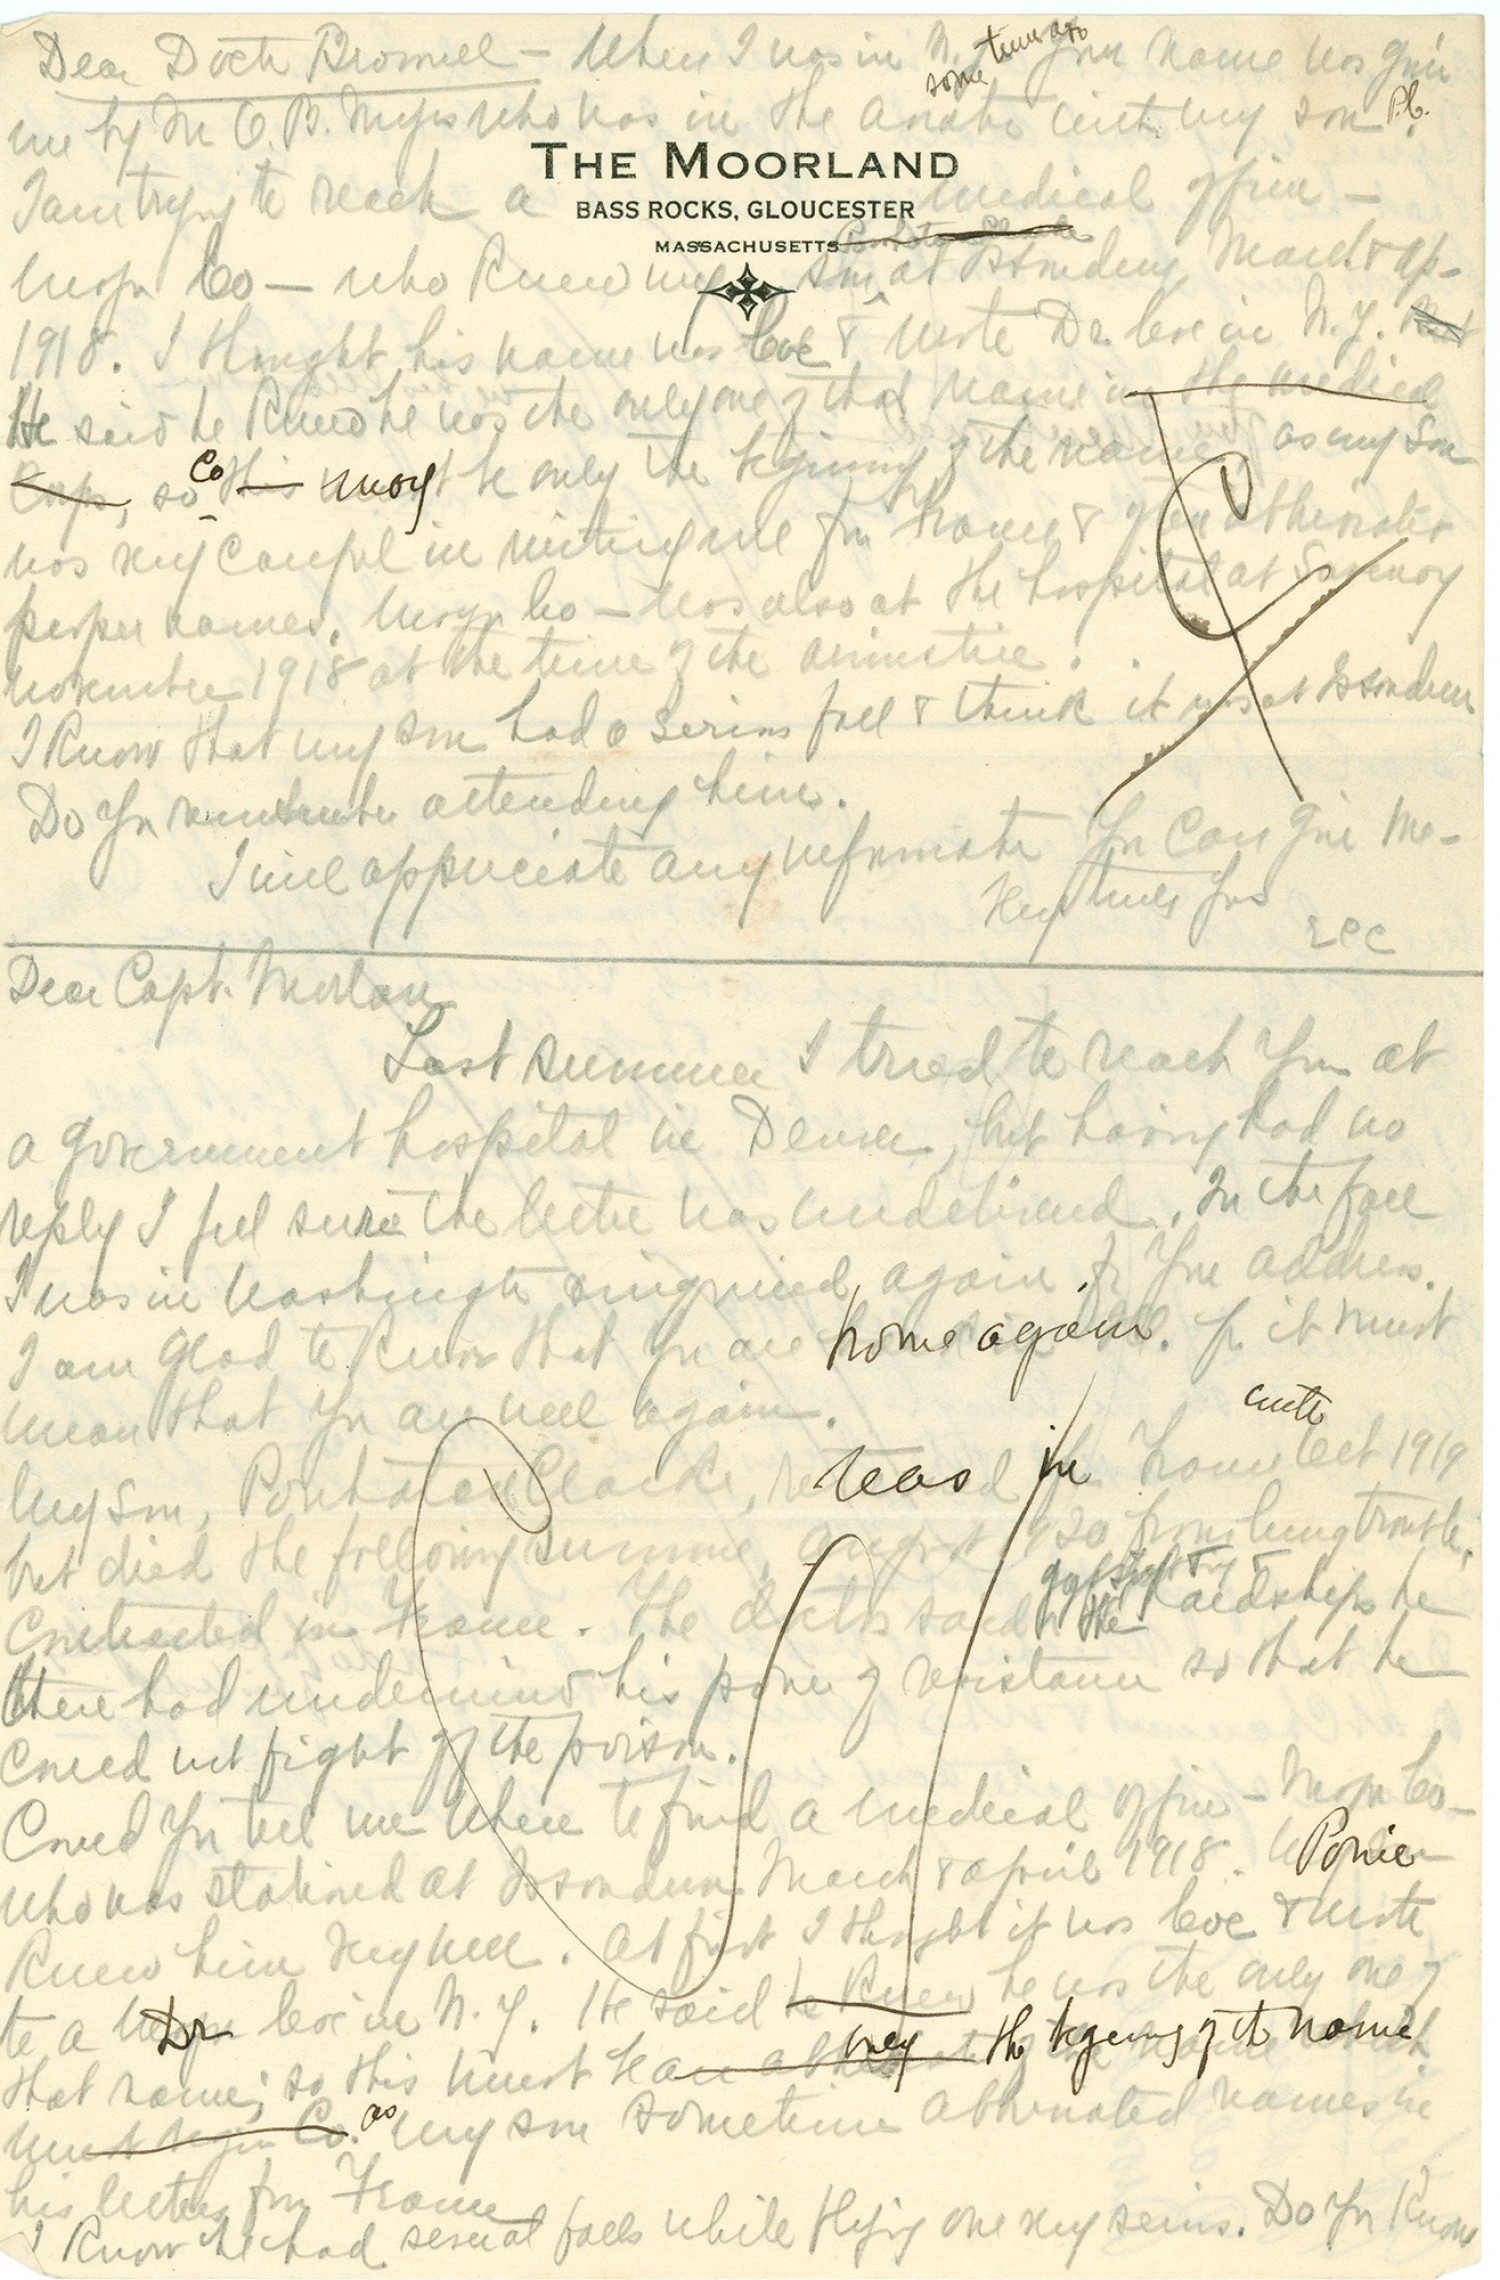 Dear Doctr Bromwell – When I was in N. Y. some time ago Your name was given
me by Mr O. B. Myers who was in the aviation with my son P.C.
THE MOORLAND
BASS ROCKS, GLOUCESTER
MASSACHUSETTS
I am trying to reach a medical officer –
Major Co – who knew my son at Issoudun March & Ap–
1918. I thought his name was Coe & wrote Dr. Coe in N.Y.
He said he knew he was the only one of that name in the medical
Corps, so Co may be only the beginning of the name, as my Son
was very careful in writing me from France & often abbreviated
proper names. Major Co – was also at the hospital at Savenay
November 1918 at the time of the armistice.
I know that my son had a serious fall & think it was at Issoudun
Do You remember attending him.
I will appreciate any information You can give me –
Very truly Yrs
Dear Capt.
Last summer I tried to reach You at
a government hospital in Denver, but having had no
reply I feel sure the letter was undelivered. In the fall
I was in Washington & inquired again for Your address.
I am glad to know that You are home again. for it must
mean that You are well again.
My Son, Powhatan Clarke, was in France until Oct 1919
but died the following summer, August 1920 from lung trouble,
Contracted in France. The doctors said the hardships he
there had undermined his power of resistance so that he
could not fight off the poison.
Could You tell me where to find a medical officer – Major Co –
who was stationed at Issoudun March & April 1918. Powie
Knew him very well. At first I thought it was Coe & wrote
to a Dr Coe in N.Y. He said he knew he was the only one of
that name; so this must be only the begining of the name
must begin Co. as My son sometime abbreviated names in
his letters from France
I know he had several falls while flying one very serious. Do You Know